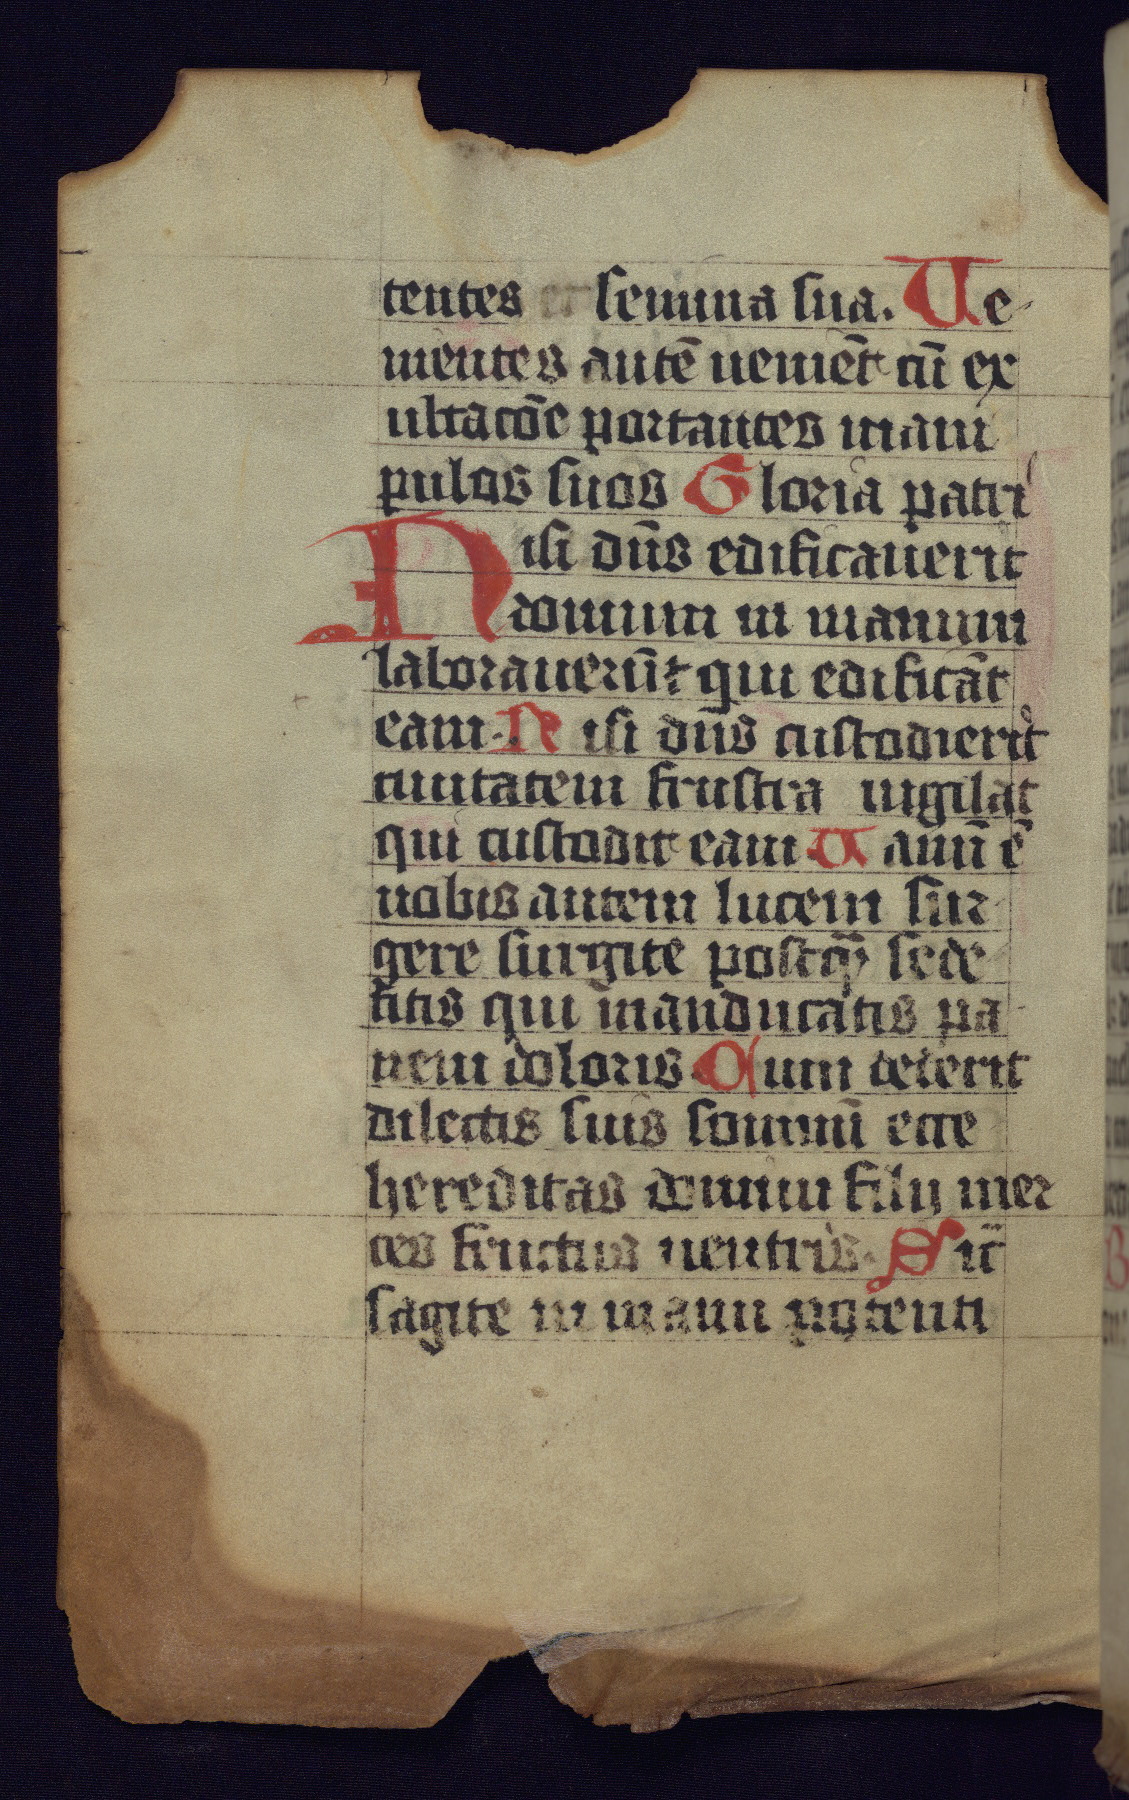 tentes et semina sua. Ve
nientes autē veniēt cū ex
ultacōe portantes mani
pulos suos Gloria patri
Nisi dn̄s edificauerit
domum in uanum
laborauerūt qui edificāt
eam. Nisi dn̄s custodierit
ciuitatem frustra uigilat
qui custodit eam Uanū ē
uobis autem lucem sur
gere surgite postq̄ sede
ritis qui manducatis pa
nem doloris Cum dederit
dilectis suis sompnū ecce
hereditas domini filij mer
ces fructus uentris. Sic̄
sagite in manu potenti